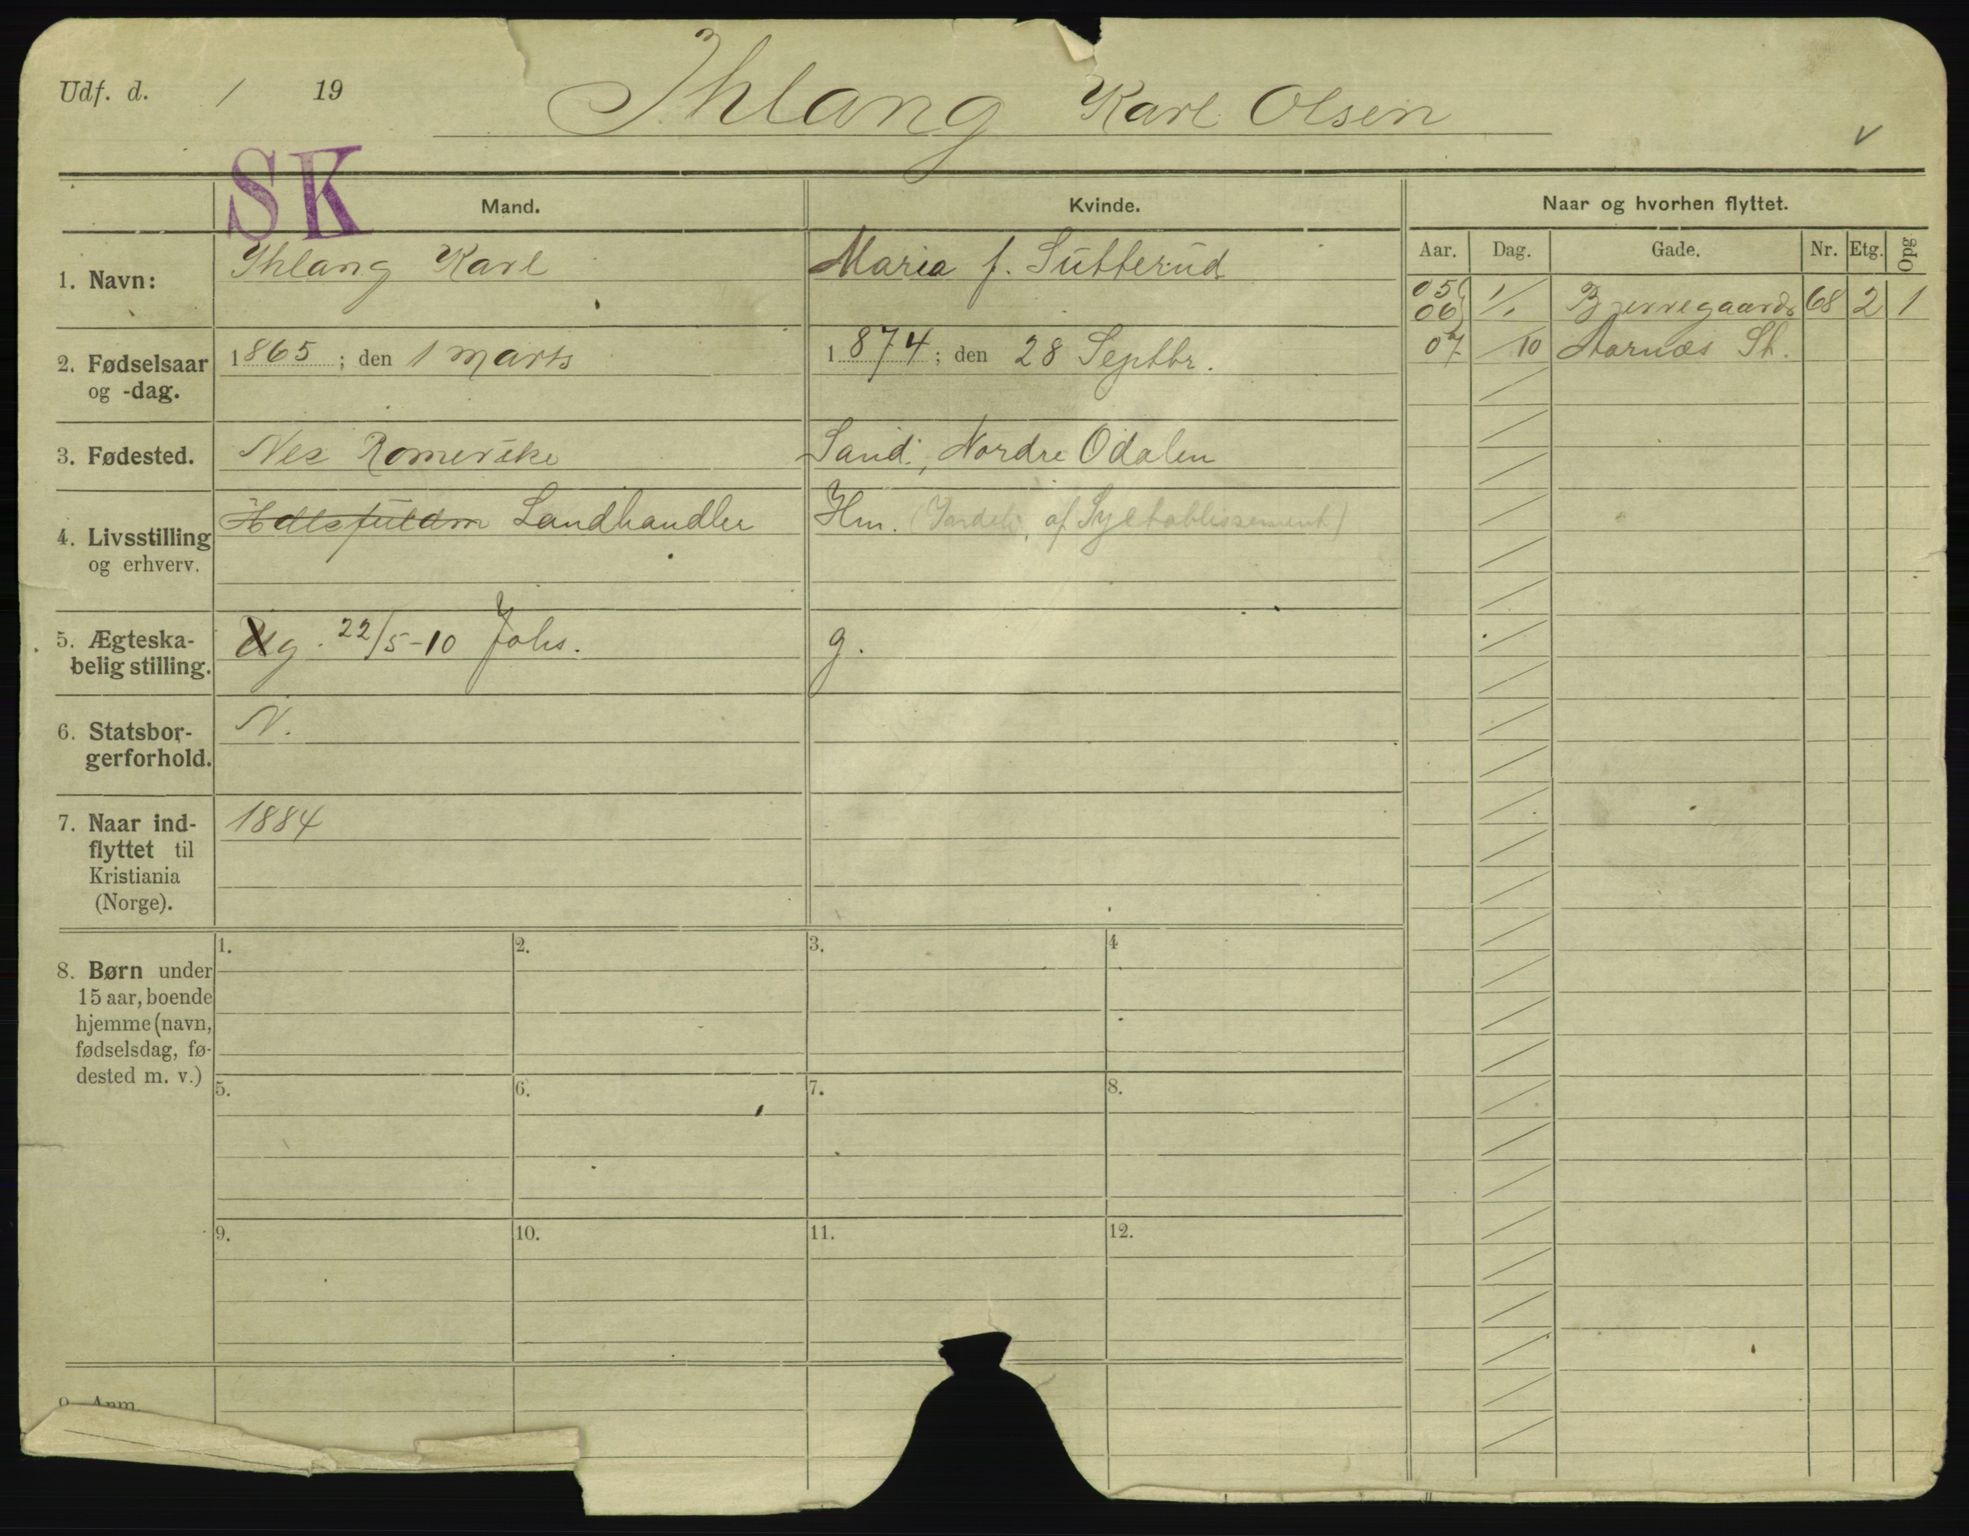 Udf. d. / 19
Ihlang Karl Olsen
v
SK
Mand.
Kvinde.
Naar og hvorhen flyttet.
Aar. Dag. Gade. Nr. Etg. Opg
1. Navn:
Ihlang Karl
Maria f. Sutterud
05
06 1/1 Bjerregaards 68 2 1
07 /10 Aarnæs St.
2. Fødselsaar
og -dag.
1865; den 1 marts
1874; den 28 Septbr.
3. Fødested.
Nes Romerike
Sand, Nordre Odalen
4. Livsstilling
og erhverv.
Hdlsfuldm Landhandler
Hm. (Indeh. af Syetablissement)
5. Ægteska-
belig stilling.
Ug. 22/5-10 Johs.
g.
6. Statsbor-
gerforhold.
N.
7. Naar ind-
flyttet til
Kristiania
(Norge).
1884
8. Børn under
15 aar, boende
hjemme (navn,
fødselsdag, fø-
dested m. v.)
1. 2. 3. 4
5. 6. 7. 8.
9. 10. 11. 12.
9. Anm.